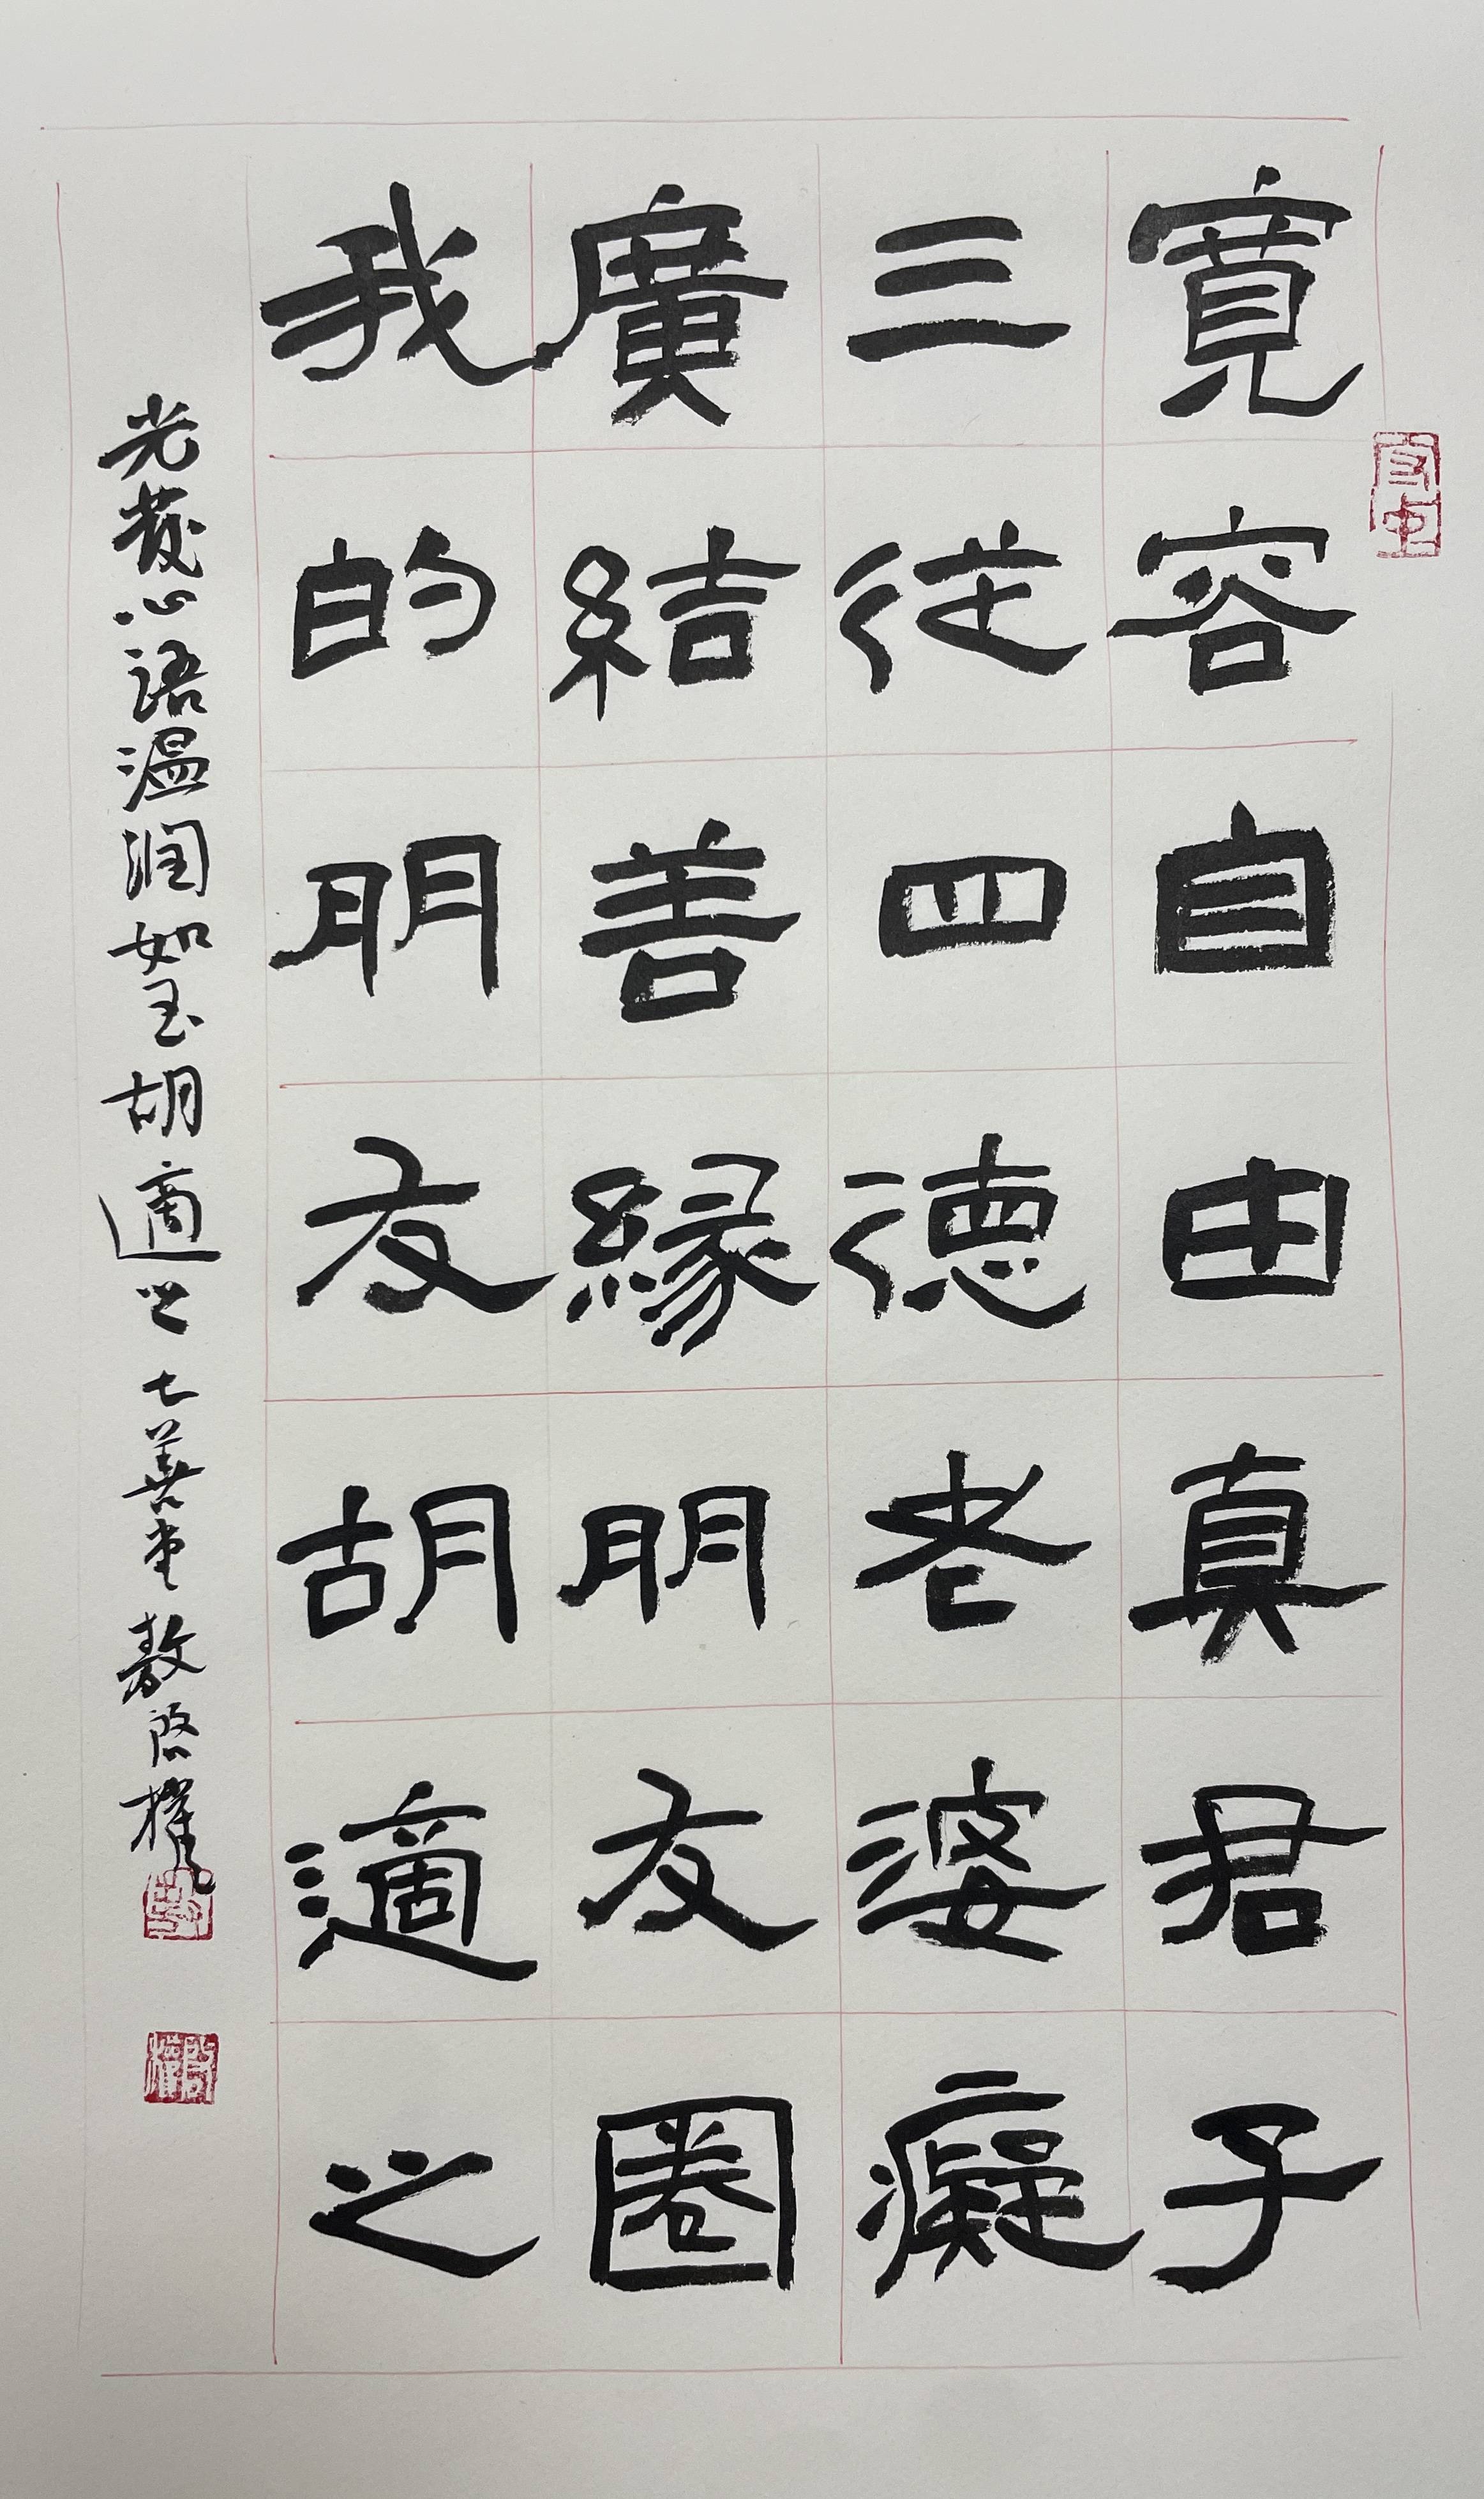 寬容自由真君子
三從四德老婆癡
廣結善緣朋友圈
我的朋友胡適之
光發心語溫润如玉胡適之 七善堂 敖啓權